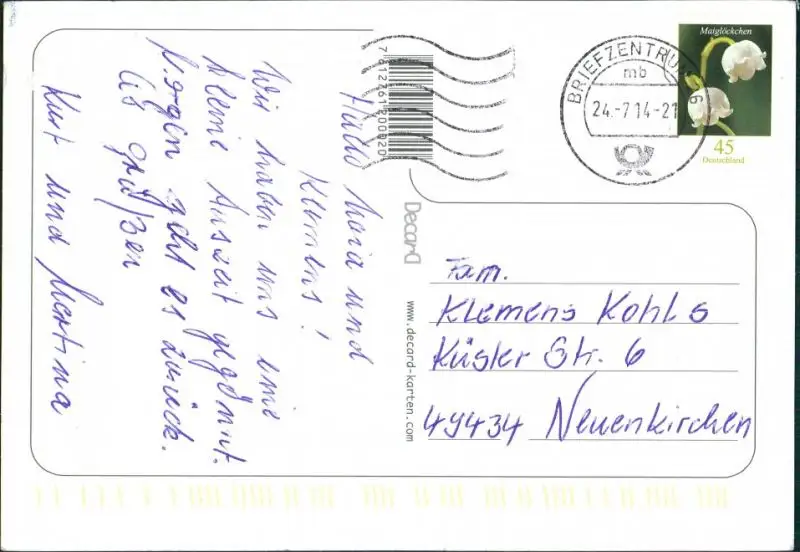 Hallo Maria und
Klemens!
Wir haben uns eine
kleine Auszeit gegönnt.
Morgen geht es zurück.
Es grüßen
Kurt und Martina
7 612761 200020
DecarD
www.decard-karten.com
BRIEFZENTRUM
mb
24.-7.14-21
Maiglöckchen
45
Deutschland
Fam.
Klemens Kohls
Küsler Str. 6
49434 Neuenkirchen